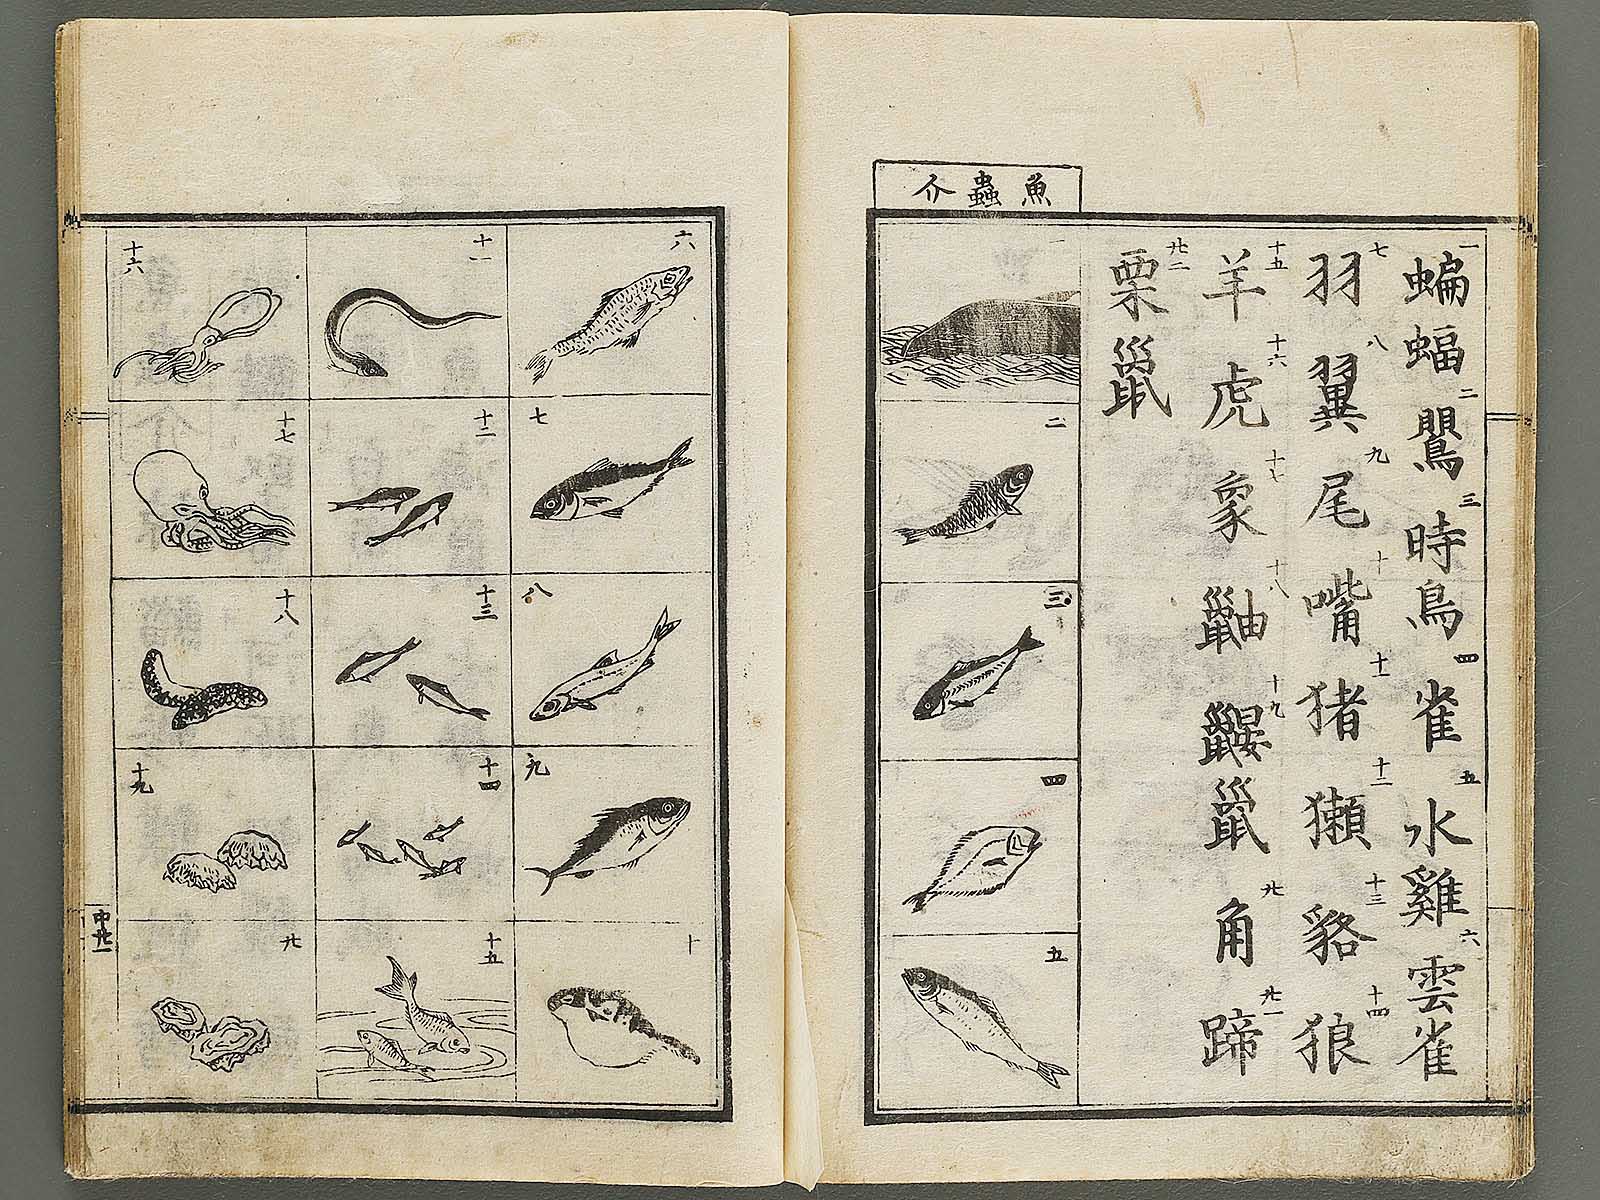 魚蟲介
一 蝙蝠 二 鷪 三 時鳥 四 雀 五 水雞 六 雲雀
七 羽 八 翼 九 尾 十 嘴 十一 猪 十二 獺 十三 貉 十四 狼
十五 羊 十六 虎 十七 象 十八 鼬 十九 鼴鼠 廿 角 廿一 蹄
廿二 栗鼠
一
二
三
四
五
六
七
八
九
十
十一
十二
十三
十四
十五
十六
十七
十八
十九
廿
中廿一